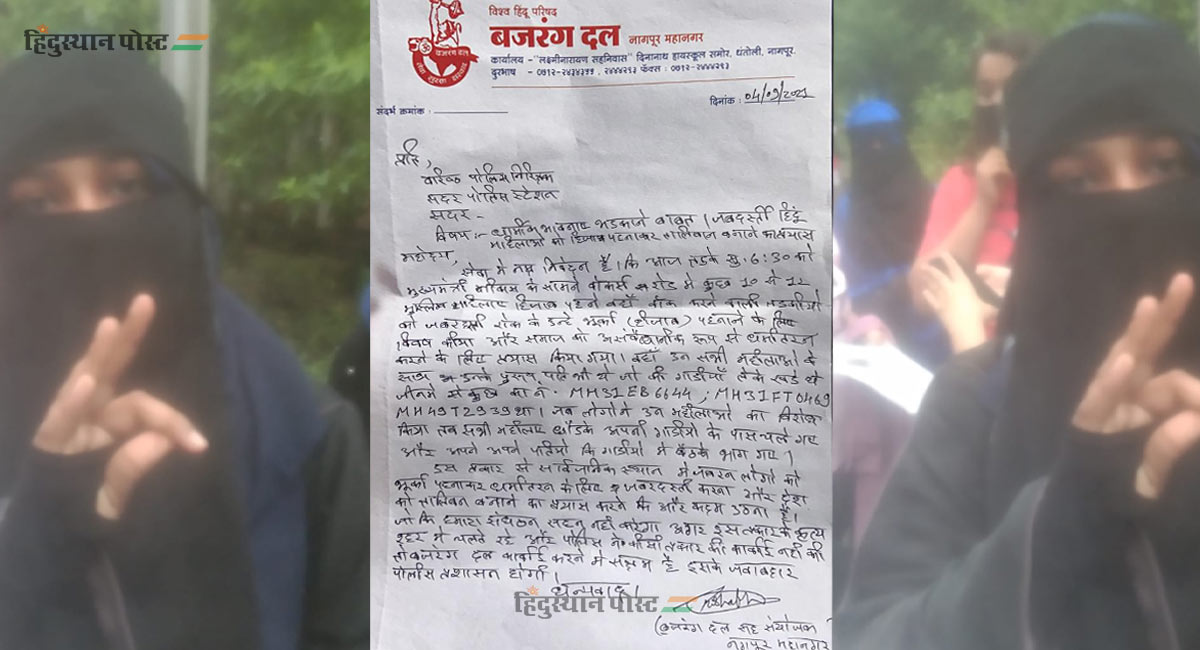 हिंदुस्थान पोस्ट
विश्व हिंदू परिषद
बजरंग दल नागपुर महानगर
कार्यालय - "लक्ष्मीनारायण सहनिवास" दिनानाथ हायस्कूल समोर, धंतोली, नागपूर.
दुरभाष - फॅक्स : ०७१२-२४४४२९३
बजरंग दल
संदर्भ क्रमांक :
दिनांक : 04/09/2021
प्रति,
वरिष्ठ पोलिस निरिक्षक
सदर पोलिस स्टेशन
सदर -
विषय :- धार्मिक भावनाए भडकाने बाबत । जबदस्ती हिंदू
महिलाओं को हिजाब पहनाकर तालिबान बनाने का प्रयास
महोदय,
सेवा मे नम्र निवेदन है। कि आज तडके सु. 6:30 को
मुख्यमंत्री के सामने वॉकर्स रोड मे कुछ 10 से 12
मुस्लिम महिलाए हिजाब पहने वहाँ वॉक करने वाली लडकीयो
को जबरदस्ती रोक के उन्हे बुर्का (हीजाब) पहनाने के लिए
विवष कीया और समाज को असंवैधानिक रूप से धर्मांतरन
करने के लिए प्रयास किया गया। वहाँ उन सभी महीलाओ के
साथ उनके पुरुष पति भी थे जो की गाडीयाँ लेके खडे थे
जीनमे से कुछ का नं. MH31EB6644, MH31FT0469
MH49T2939 था। जब लोगोने उन महीलाओ का विरोध
किया तब सभी महीलाए दौडके अपनी गाडीयो के पास चले गए
और अपने अपने पतियो कि गाडीयो मे बैठके भाग गए।
इस प्रकार से सार्वजनिक स्थान मे जबरन लोगो को
बुर्का पहनाकर धर्मांतरन के लिए जबरदस्ती करना और देश
को तालिबान बनाने का प्रयास करने कि और कदम उठना है।
जो कि हमारा संघटन सहन नही करेगा अगर इस प्रकार के कृत्य
शहर मे चलते रहे और पोलिस ने कीसी प्रकार की कार्रवाई नही की
तो बजरंग दल कार्रवाई करने मे सक्षम है इसके जवाबदार
पोलीस प्रशासन होगी।
धन्यवाद।
हिंदुस्थान पोस्ट
(बजरंग दल सह संयोजक
नागपुर महानगर